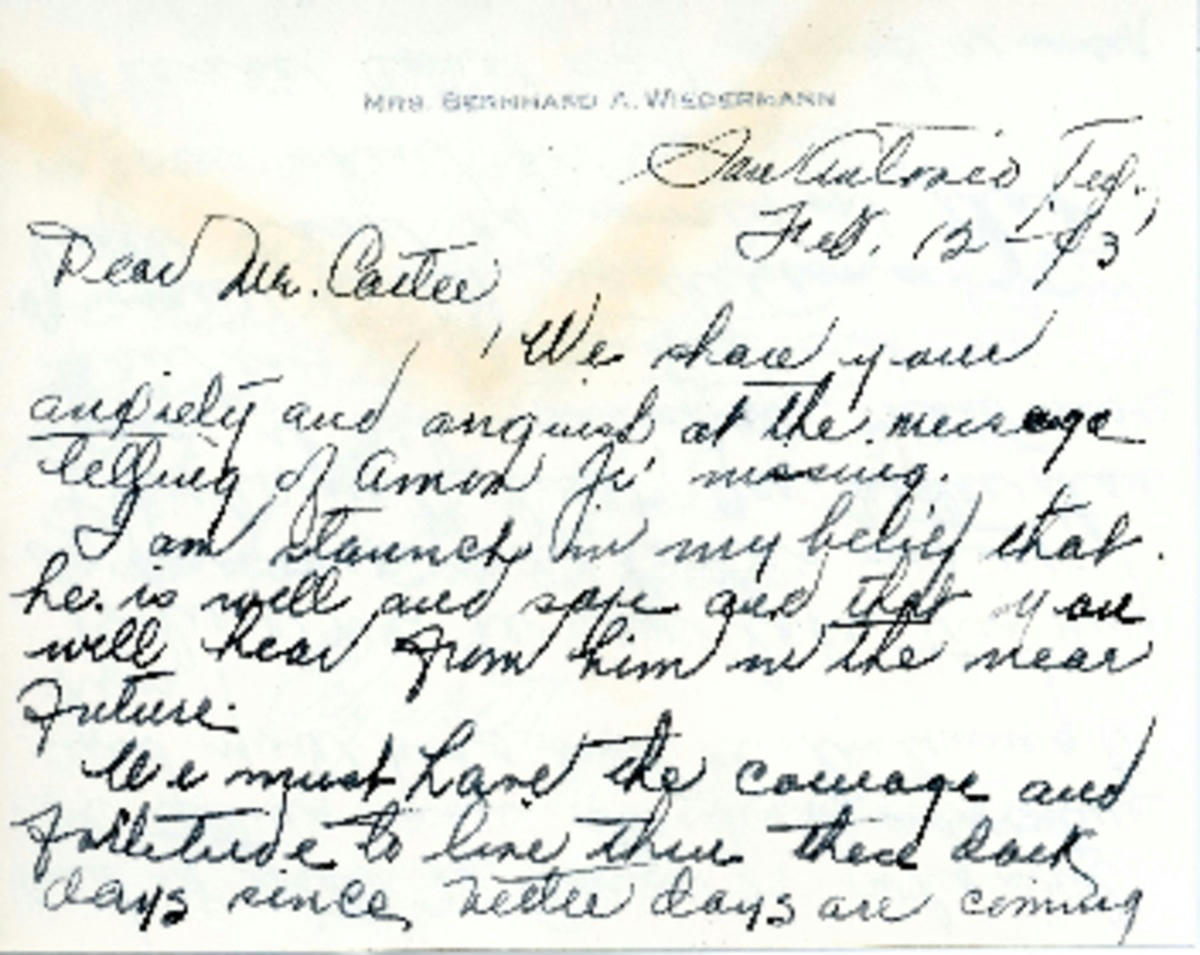 MRS. BERNHARD A. WIEDERMANN
San Antonio Tex.,
Feb. 12 - 43
Dear Mr. Carter,
We share your
anxiety and anguish at the message
telling of Amon Jr' missing.
I am staunch in my belief that
he is well and safe and that you
will hear from him in the near
future.
We must have the courage and
fortitude to live thru these dark
days since better days are coming